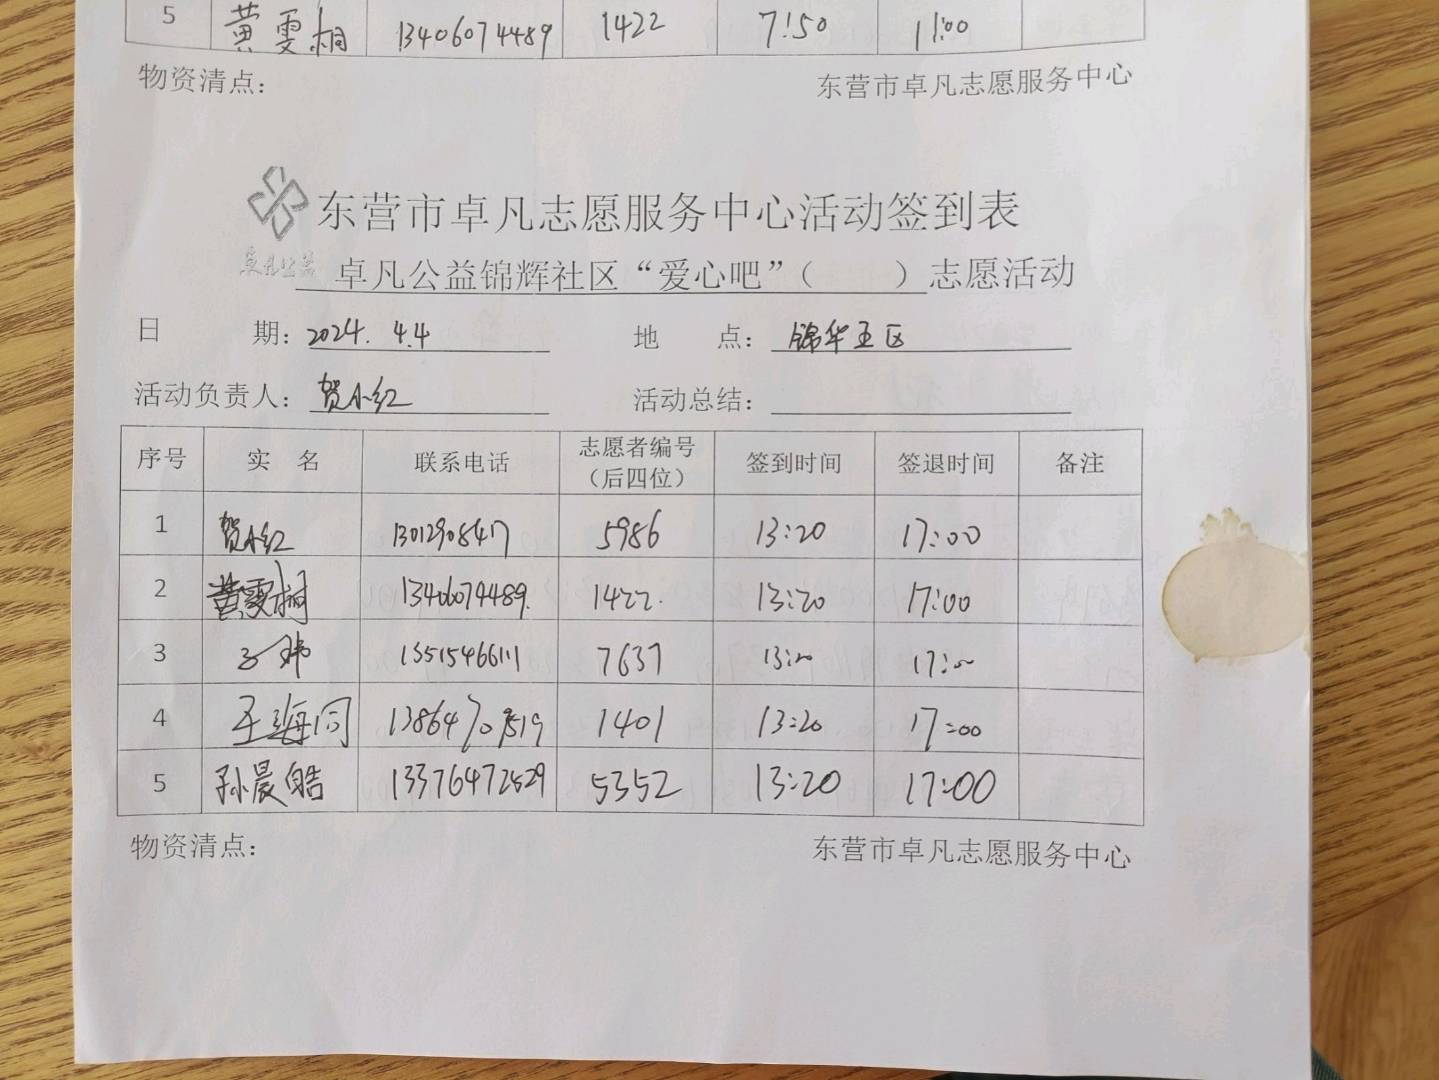 5 黄雯桐 13406074489 1422 7:50 11:00
物资清点： 东营市卓凡志愿服务中心
东营市卓凡志愿服务中心活动签到表
卓凡公益
卓凡公益锦辉社区“爱心吧”（ ）志愿活动
日 期：2024.4.4 地 点：锦华五区
活动负责人：贺小红 活动总结：
序号 实 名 联系电话 志愿者编号（后四位） 签到时间 签退时间 备注
1 贺小红 5986 13:20 17:00
2 黄雯桐 13406074489. 1422. 13:20 17:00
3 13515466111 7637 13:20 17:00
4 王海 1401 13:20 17:00
5 孙晨皓 13376472529 5352 13:20 17:00
物资清点： 东营市卓凡志愿服务中心